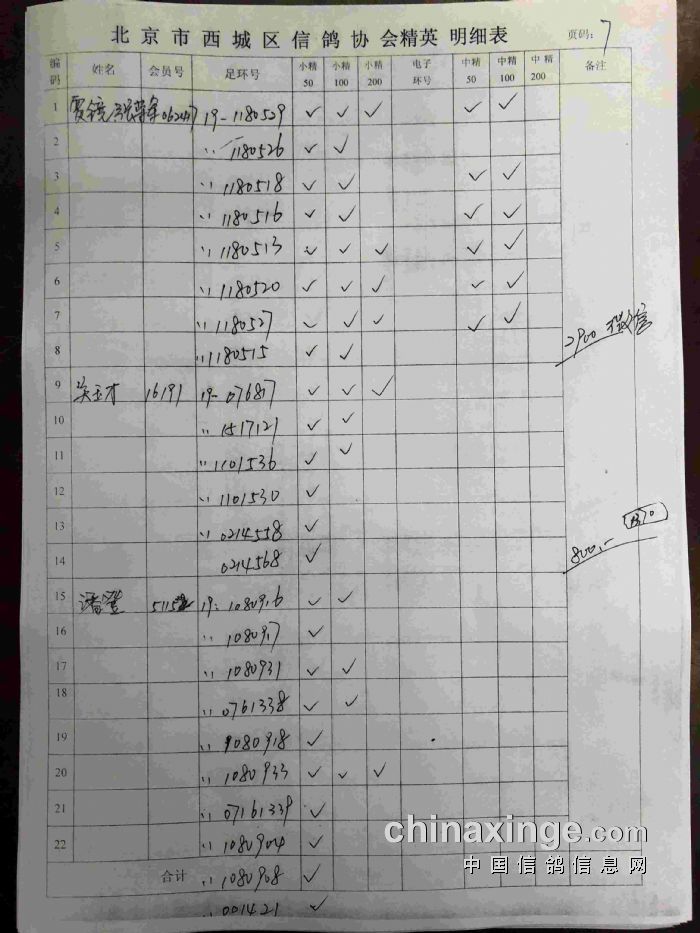 北京市西城区信鸽协会精英 明细表 页码: 7
编码 姓名 会员号 足环号 小精50 小精100 小精200 电子环号 中精50 中精100 中精200 备注
1 062417 19-1180529 ✓ ✓ ✓ ✓ ✓
2 〃 1180526 ✓ ✓
3 〃 1180518 ✓ ✓ ✓ ✓
4 〃 1180516 ✓ ✓ ✓ ✓
5 〃 1180513 ✓ ✓ ✓ ✓ ✓
6 〃 1180520 ✓ ✓ ✓ ✓ ✓
7 〃 1180527 ✓ ✓ ✓ ✓ ✓ 2900 微信
8 〃 1180515 ✓ ✓
9 吴玉才 16191 19-076817 ✓ ✓ ✓
10 〃 1517121 ✓ ✓
11 〃 1101536 ✓ ✓
12 〃 1101530 ✓
13 〃 0214558 ✓
14 0214568 ✓ 800.-
15 19- 1080916 ✓ ✓
16 〃 1080917 ✓
17 〃 1080931 ✓ ✓
18 〃 0761338 ✓ ✓
19 〃 9080918 ✓
20 〃 1080933 ✓ ✓ ✓
21 〃 07161339 ✓
22 〃 1080904 ✓
合计 〃 1080908 ✓
〃 001421 ✓
chinaxinge.com
中国信鸽信息网